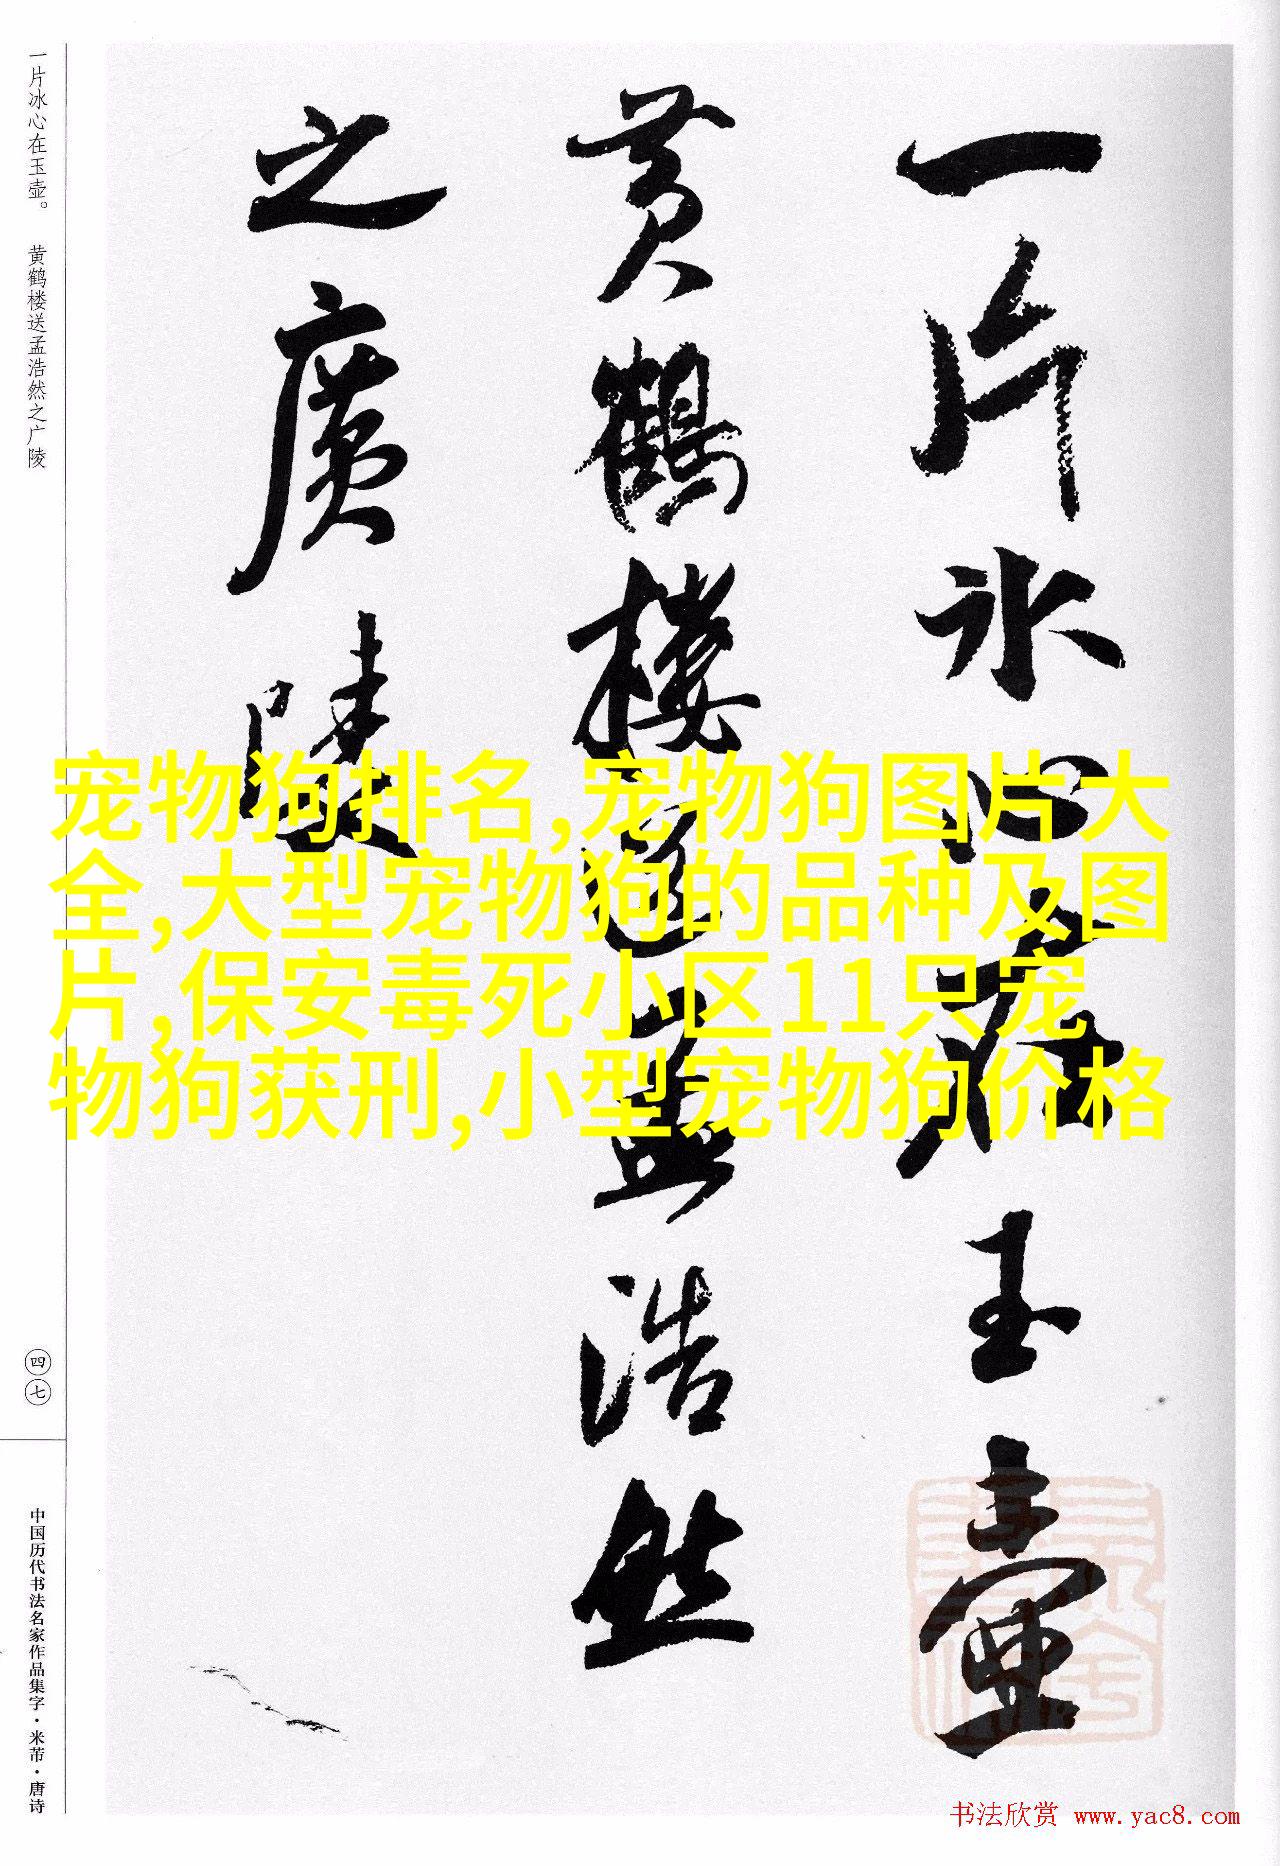 一片冰心在玉壶
黄鹤楼送孟浩然
之廣陵
一片冰心在玉壶。 黄鹤楼送孟浩然之广陵
四七
中国历代书法名家作品集字·米芾·唐诗
宠物狗排名,宠物狗图片大
全,大型宠物狗的品种及图
片,保安毒死小区11只宠
物狗获刑,小型宠物狗价格
书法欣赏 www.yac8.com